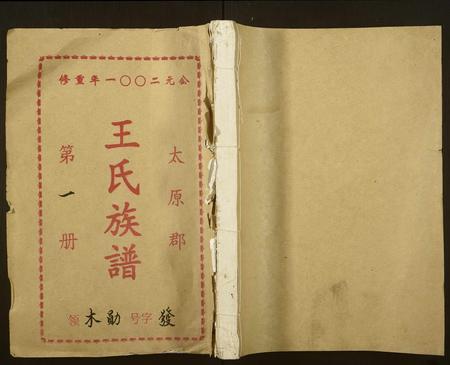 公元二〇〇一年重修
太原郡
王氏族譜
第一册
發字号勛木領